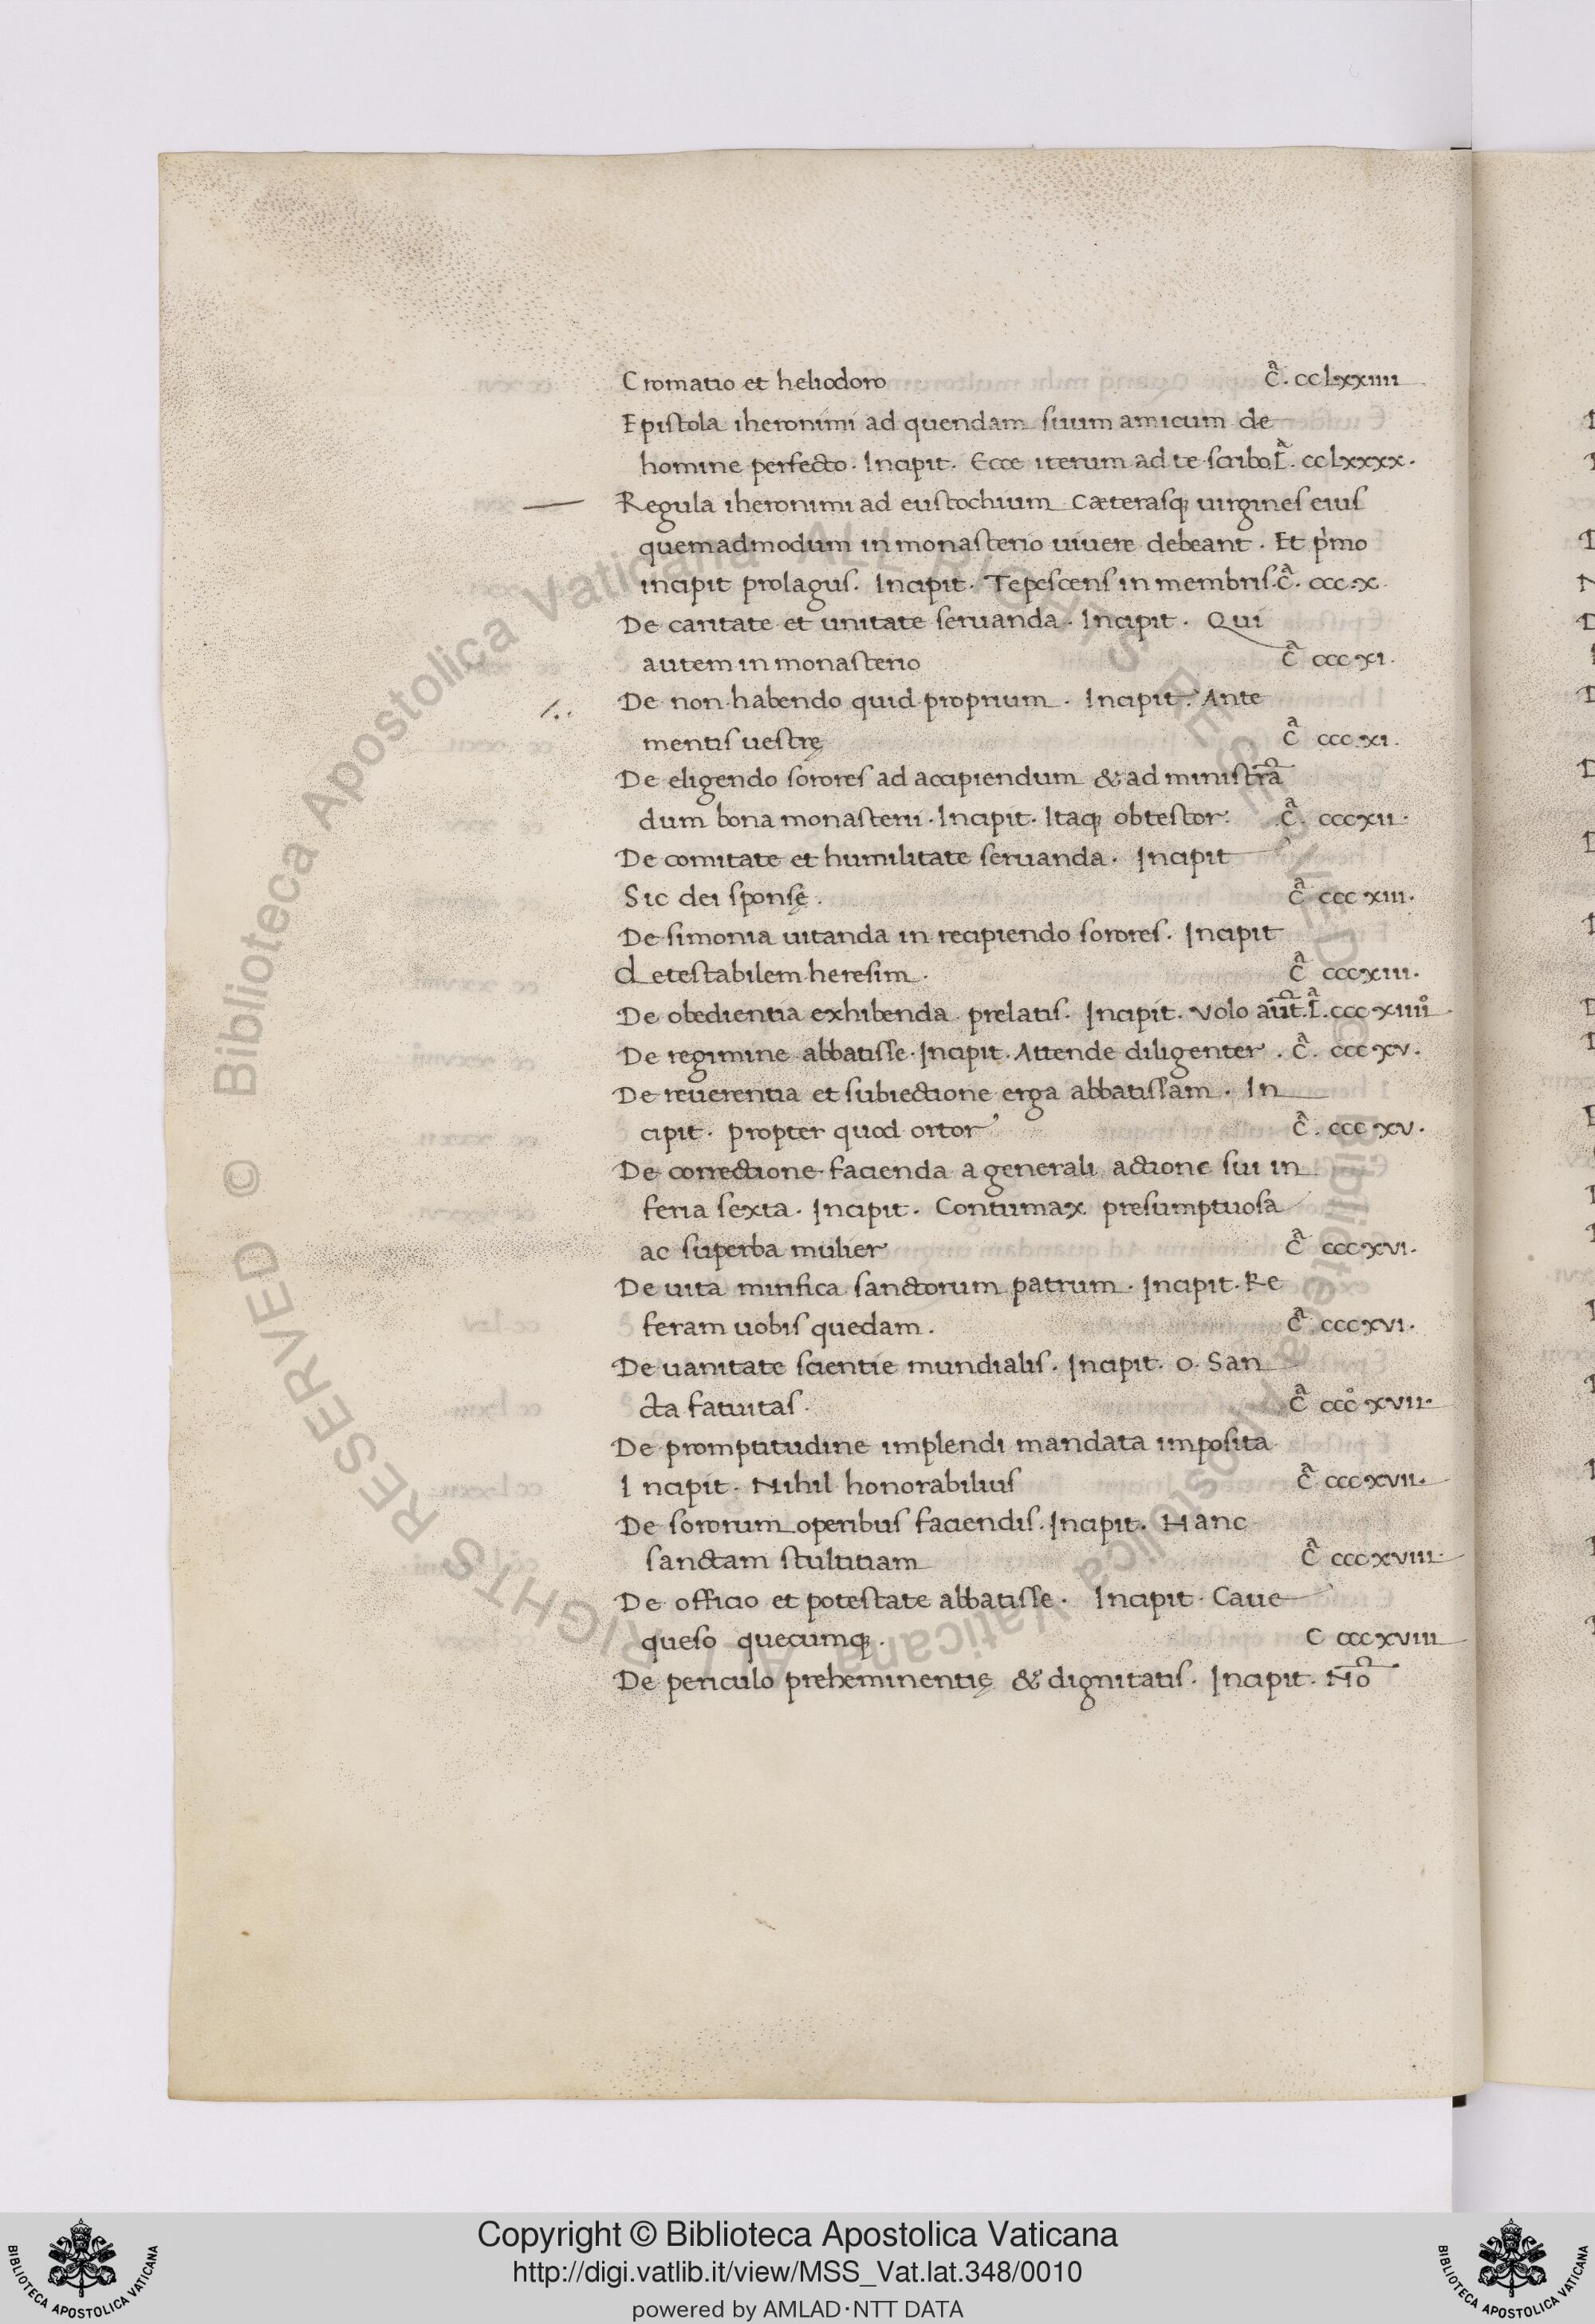 Cromatio et heliodoro c̃ᵃ. cclxxiiii
Epistola iheronimi ad quendam suum amicum de
homine perfecto. Incipit. Ecce iterum ad te scribo c̃ᵃ. cclxxxx.
Regula iheronimi ad eustochium cæterasqꝫ uirgines eius
quemadmodum in monasterio uiuere debeant. Et pͥmo
incipit prolagus. Incipit. Tepescens in membris. c̃ᵃ. ccc.x.
De caritate et unitate seruanda. Incipit. Qui
autem in monasterio c̃ᵃ ccc.xi.
De non habendo quid proprium. Incipit. Ante
mentis uestrę c̃ᵃ ccc.xi.
De eligendo sorores ad accipiendum & ad ministrā
dum bona monasterii. Incipit. Itaqꝫ obtestor. c̃ᵃ. cccxii.
De comitate et humilitate seruanda. Incipit
Sic dei sponsę. c̃ᵃ ccc xiii.
De simonia uitanda in recipiendo sorores. Incipit
detestabilem heresim. c̃ᵃ cccxiii.
De obedientia exhibenda prelatis. Incipit. Volo aūt. c̃ᵃ. ccc.xiiiiº
De regimine abbatisse. Incipit. Attende diligenter. c̃ᵃ. ccc.xv.
De reuerentia et subiectione erga abbatissam. In
cipit. propter quod ortor c̃ᵃ. ccc xv.
De correctione facienda a generali actione sui in
feria sexta. Incipit. Contumax presumptuosa
ac superba mulier c̃ᵃ cccxvi.
De uita mirifica sanctorum patrum. Incipit. Re
feram uobis quedam. c̃ᵃ cccxvi.
De uanitate scientie mundialis. Incipit. o. San
cta fatuitas. c̃ᵃ cccº xvii.
De promptitudine implendi mandata imposita
Incipit. Nihil honorabilius c̃ᵃ cccxvii.
De sororum operibus faciendis. Incipit. Hanc
sanctam stultitiam c̃ᵃ cccxviii.
De officio et potestate abbatisse. Incipit. Caue
queso quecumqꝫ. C cccxviii
De periculo preheminentię & dignitatis. Incipit. Nō
© Biblioteca Apostolica Vaticana ALL RIGHTS RESERVED © Biblioteca Apostolica Vaticana ALL RIGHTS RESERVED
Copyright © Biblioteca Apostolica Vaticana
http://digi.vatlib.it/view/MSS_Vat.lat.348/0010
powered by AMLAD·NTT DATA
BIBLIOTECA APOSTOLICA VATICANA
BIBLIOTECA APOSTOLICA VATICANA